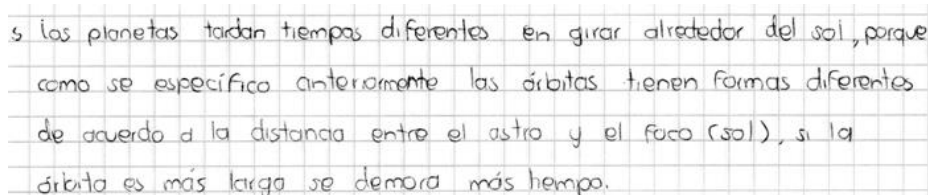 s los planetas tardan tiempos diferentes en girar alrededor del sol, porque
como se específico anteriormente las órbitas tienen formas diferentes
de acuerdo a la distancia entre el astro y el foco (sol), si la
órbita es más larga se demora más tiempo.